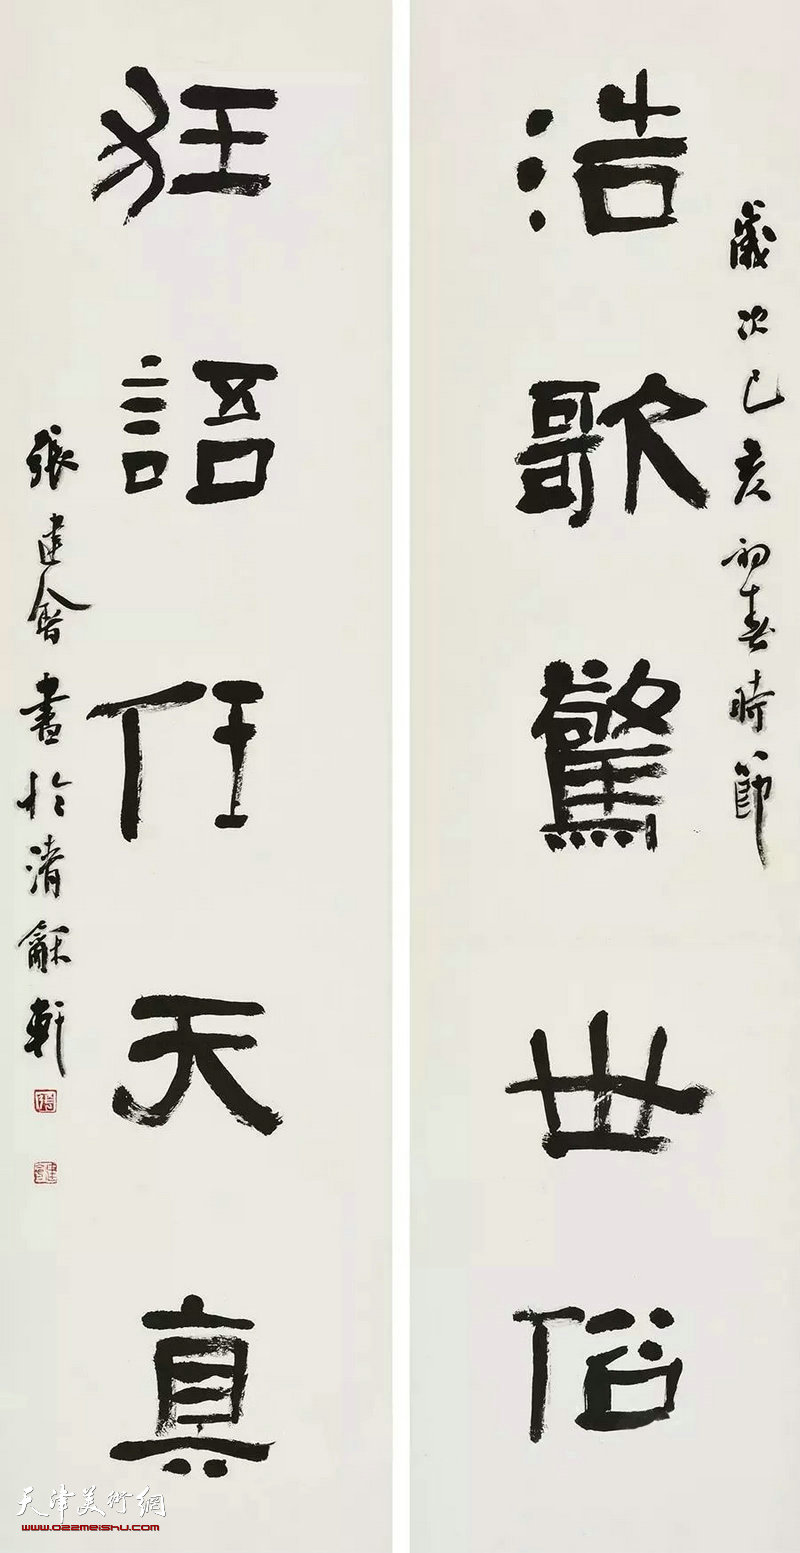 浩歌驚世俗
歲次己亥初春時節
狂語任天真
張建會書於清龢軒
天津美術網
www.022meishu.com